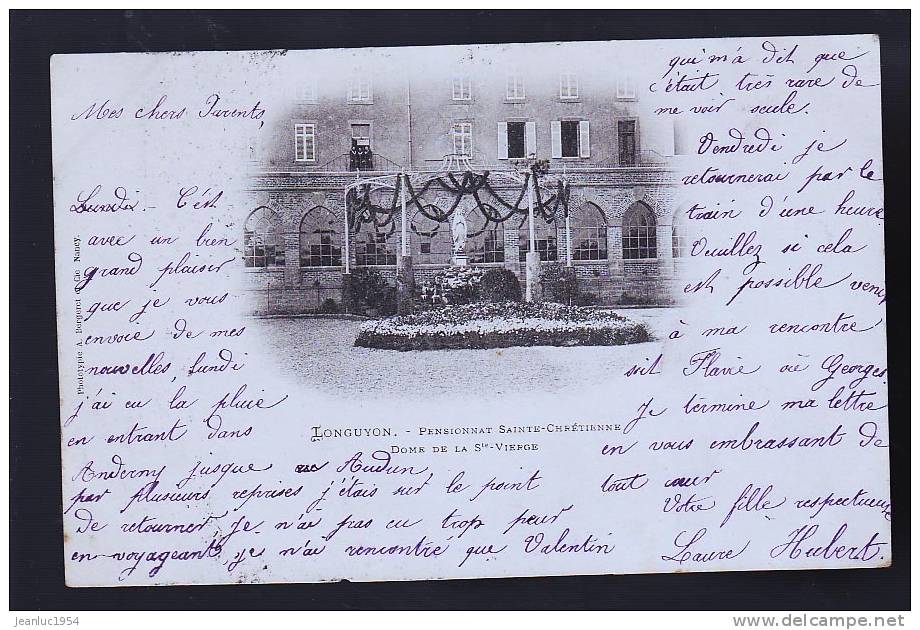 Mes chers Parents,
Lundi. - C'est
avec un bien
grand plaisir
que je vous
envoie de mes
nouvelles, Lundi
j'ai eu la pluie
en entrant dans
Anderny jusque Audun,
par plusieurs reprises j'étais sur le point
de retourner, je n'ai pas eu trop peur
en voyageant, je n'ai rencontré que Valentin
qui m'a dit que
c'était très rare de
me voir seule.
Vendredi je
retournerai par le
train d'une heure
Veuillez si cela
est possible venir
à ma rencontre
soit Flavie où Georges.
Je termine ma lettre
en vous embrassant de
tout cœur
Votre fille respectueuse
Laure Hubert.
LONGUYON. - PENSIONNAT SAINTE-CHRÉTIENNE
DOME DE LA Ste-VIERGE
Phototypie A. Bergeret et Cie Nancy.
jeanluc1954
www.delcampe.net